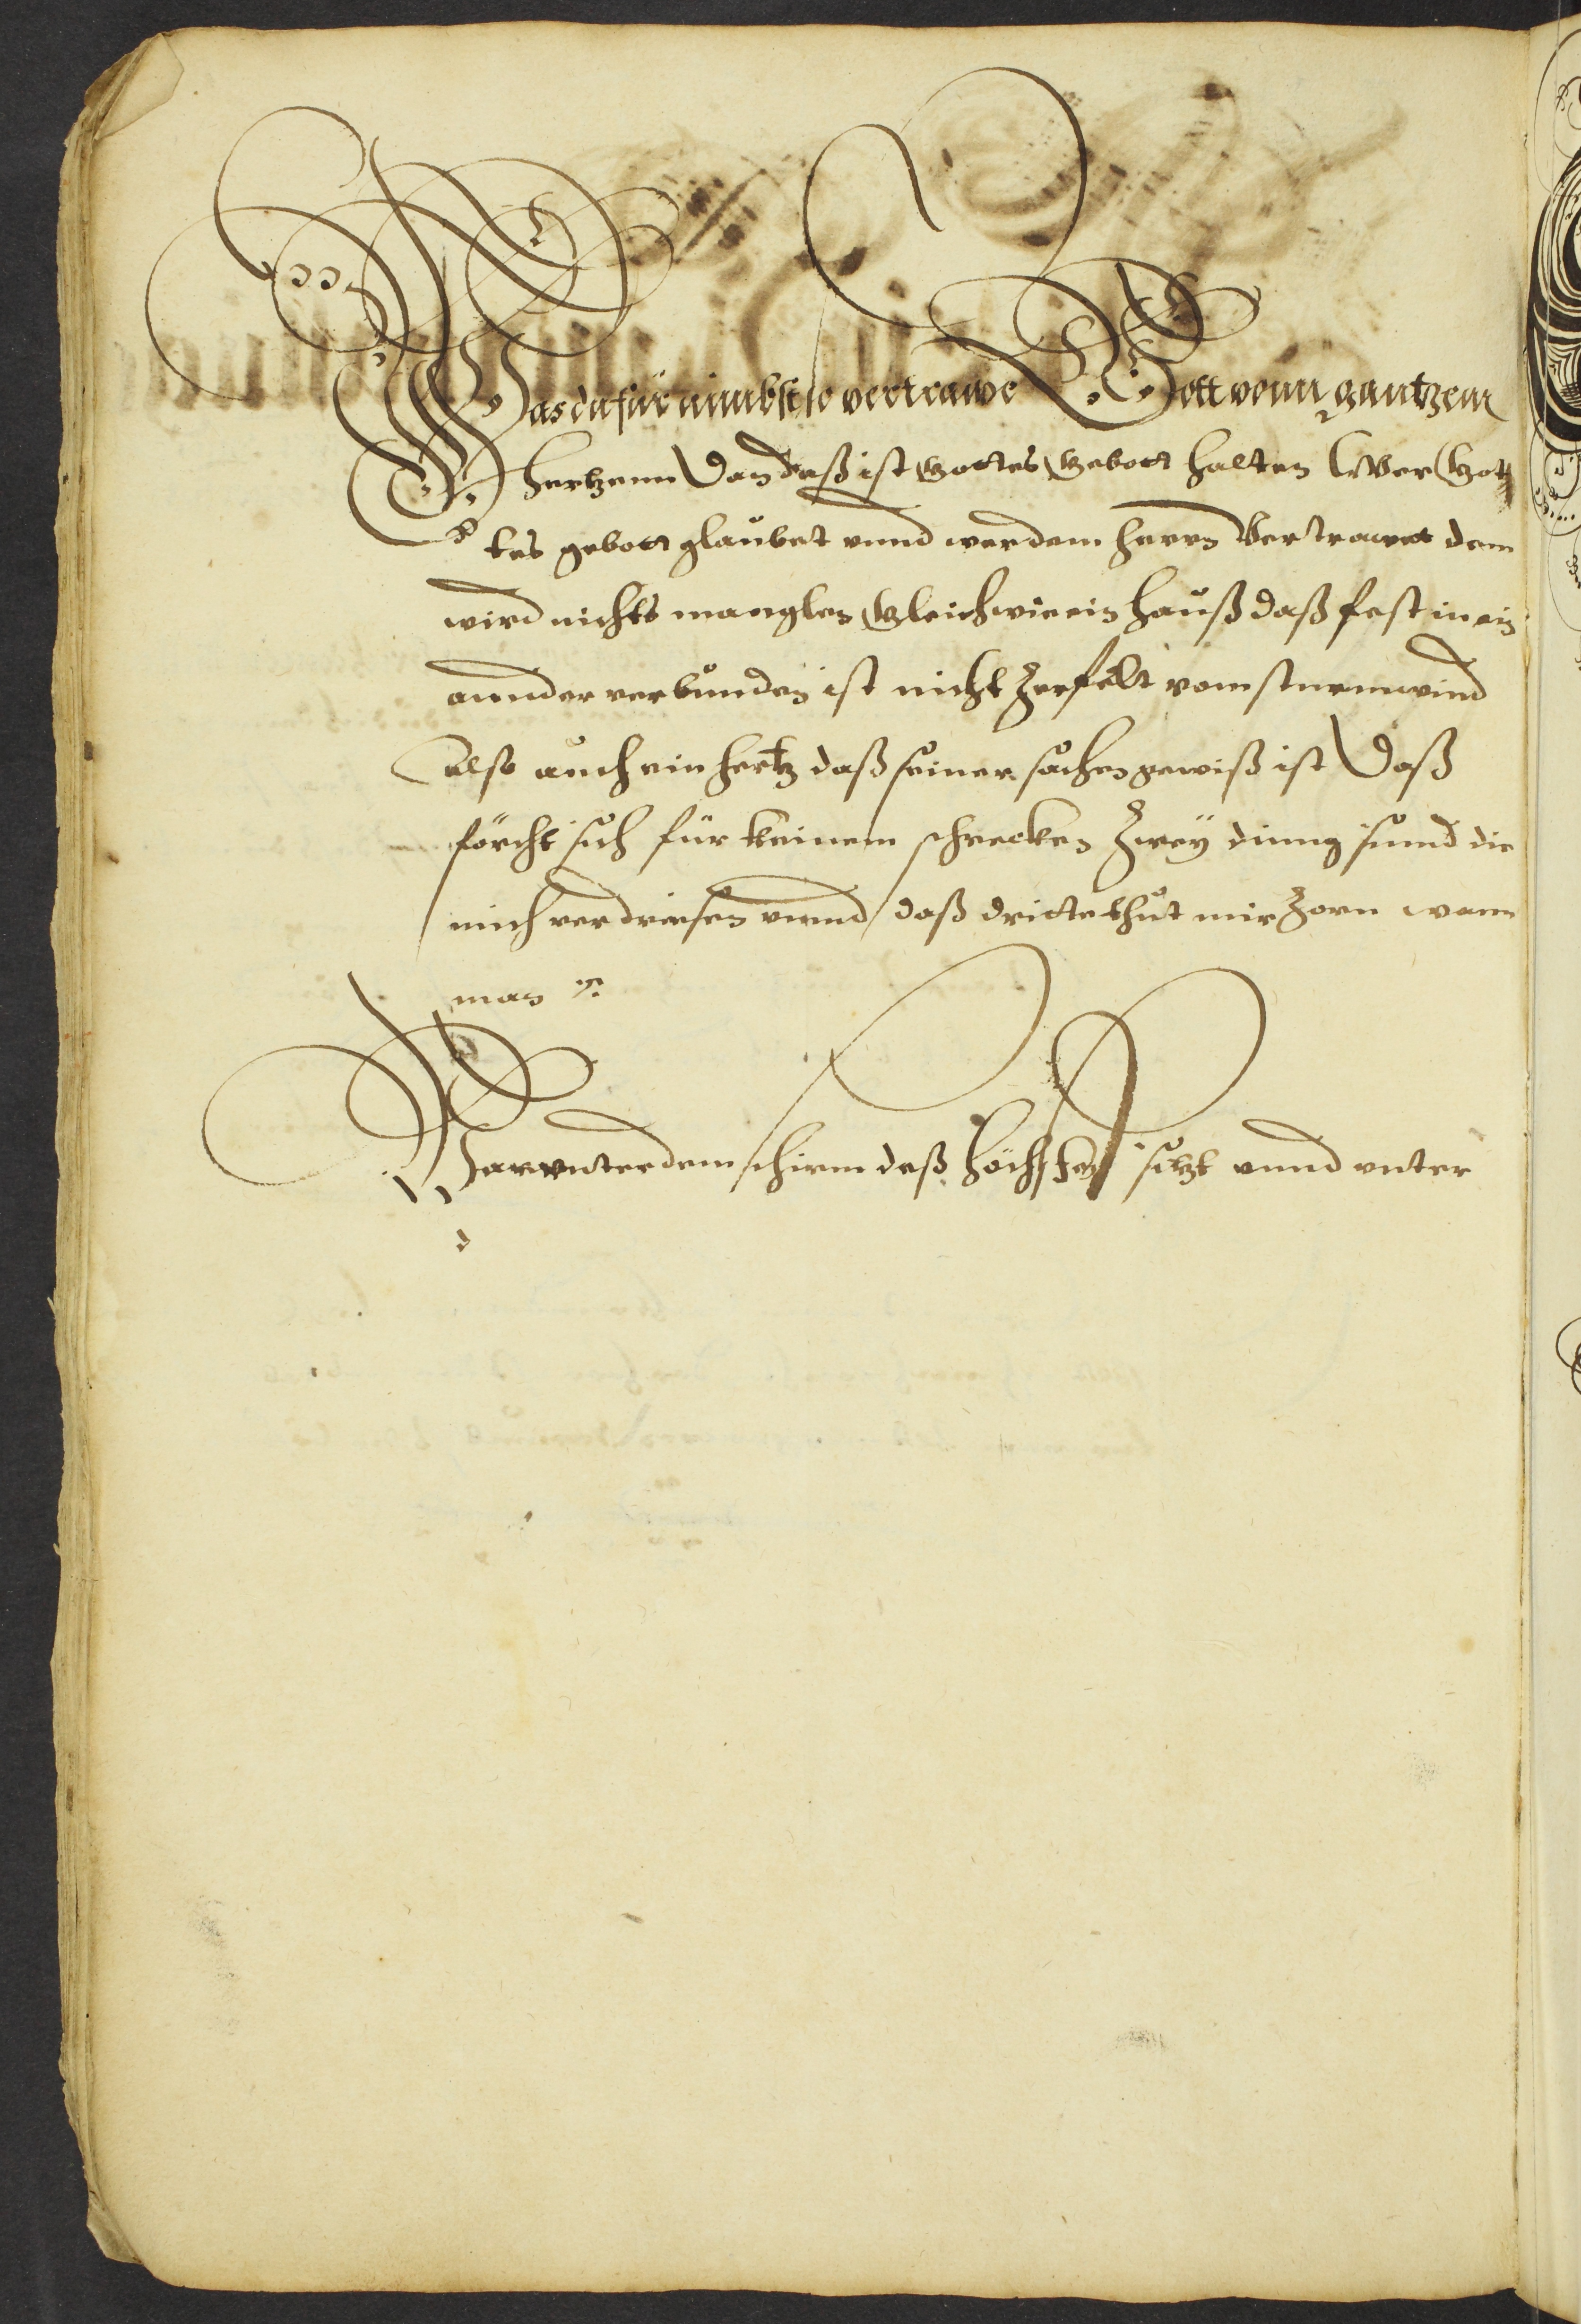 Was du für nimbst so vertrawe Gott vonn gantzem
hertzenn Dan daß ist Gottes Gebott halten Wer Got
tes gebott glaubet vnnd wer dem herrn Vertrawet dem
wird nichts manglen Gleich wie ein hauß daß fest in ein
annder verbunden ist nicht Zerfelt vom sturmwind
Also auch ein hertz daß seiner sachen gewiß ist Daß
förcht sich für keinem schrecken Zwey ding sinnd die
mich verdriesen vnnd daß dritte thut mir Zorn wann
man
Wer vnter dem schirm deß höchsten sitzt vnnd vnter
d